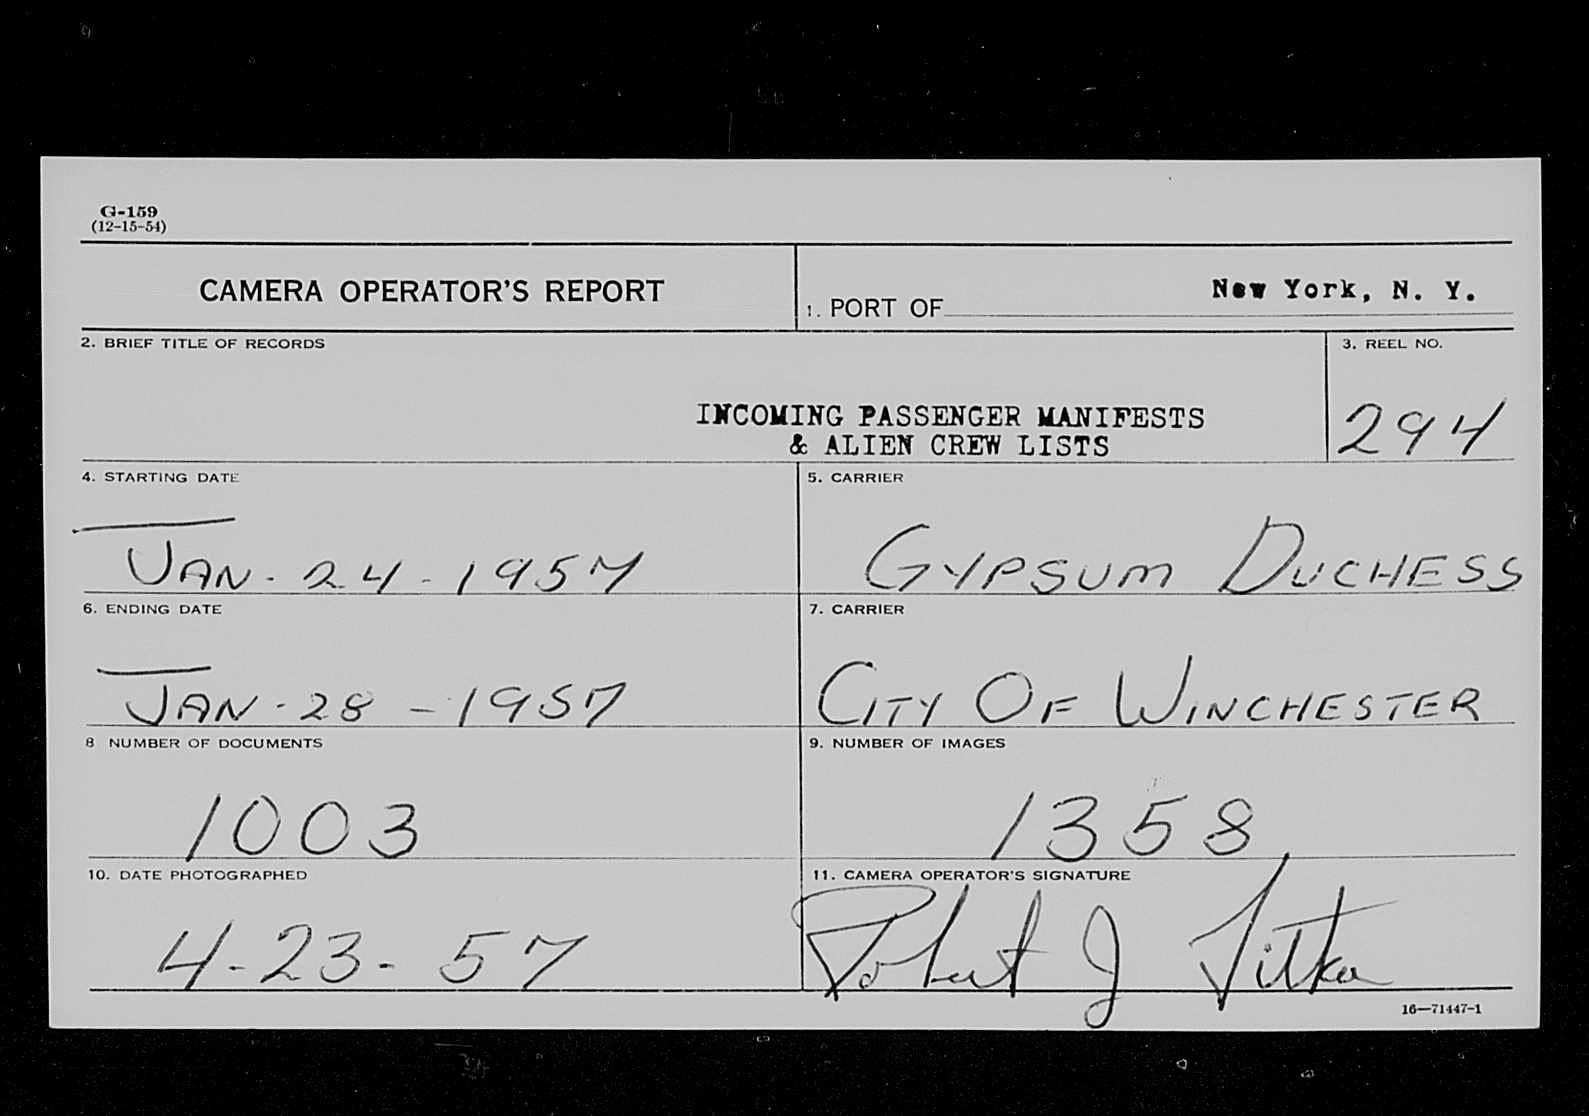 G-159
(12-15-54)
CAMERA OPERATOR'S REPORT
1. PORT OF New York, N. Y.
2. BRIEF TITLE OF RECORDS
3. REEL NO.
INCOMING PASSENGER MANIFESTS
& ALIEN CREW LISTS
294
4. STARTING DATE
5. CARRIER
JAN. 24-1957
GYPSUM DUCHESS
6. ENDING DATE
7. CARRIER
JAN-28-1957
CITY OF WINCHESTER
8 NUMBER OF DOCUMENTS
9. NUMBER OF IMAGES
1003
1358
10. DATE PHOTOGRAPHED
11. CAMERA OPERATOR'S SIGNATURE
4-23-57
Robert J
16—71447-1